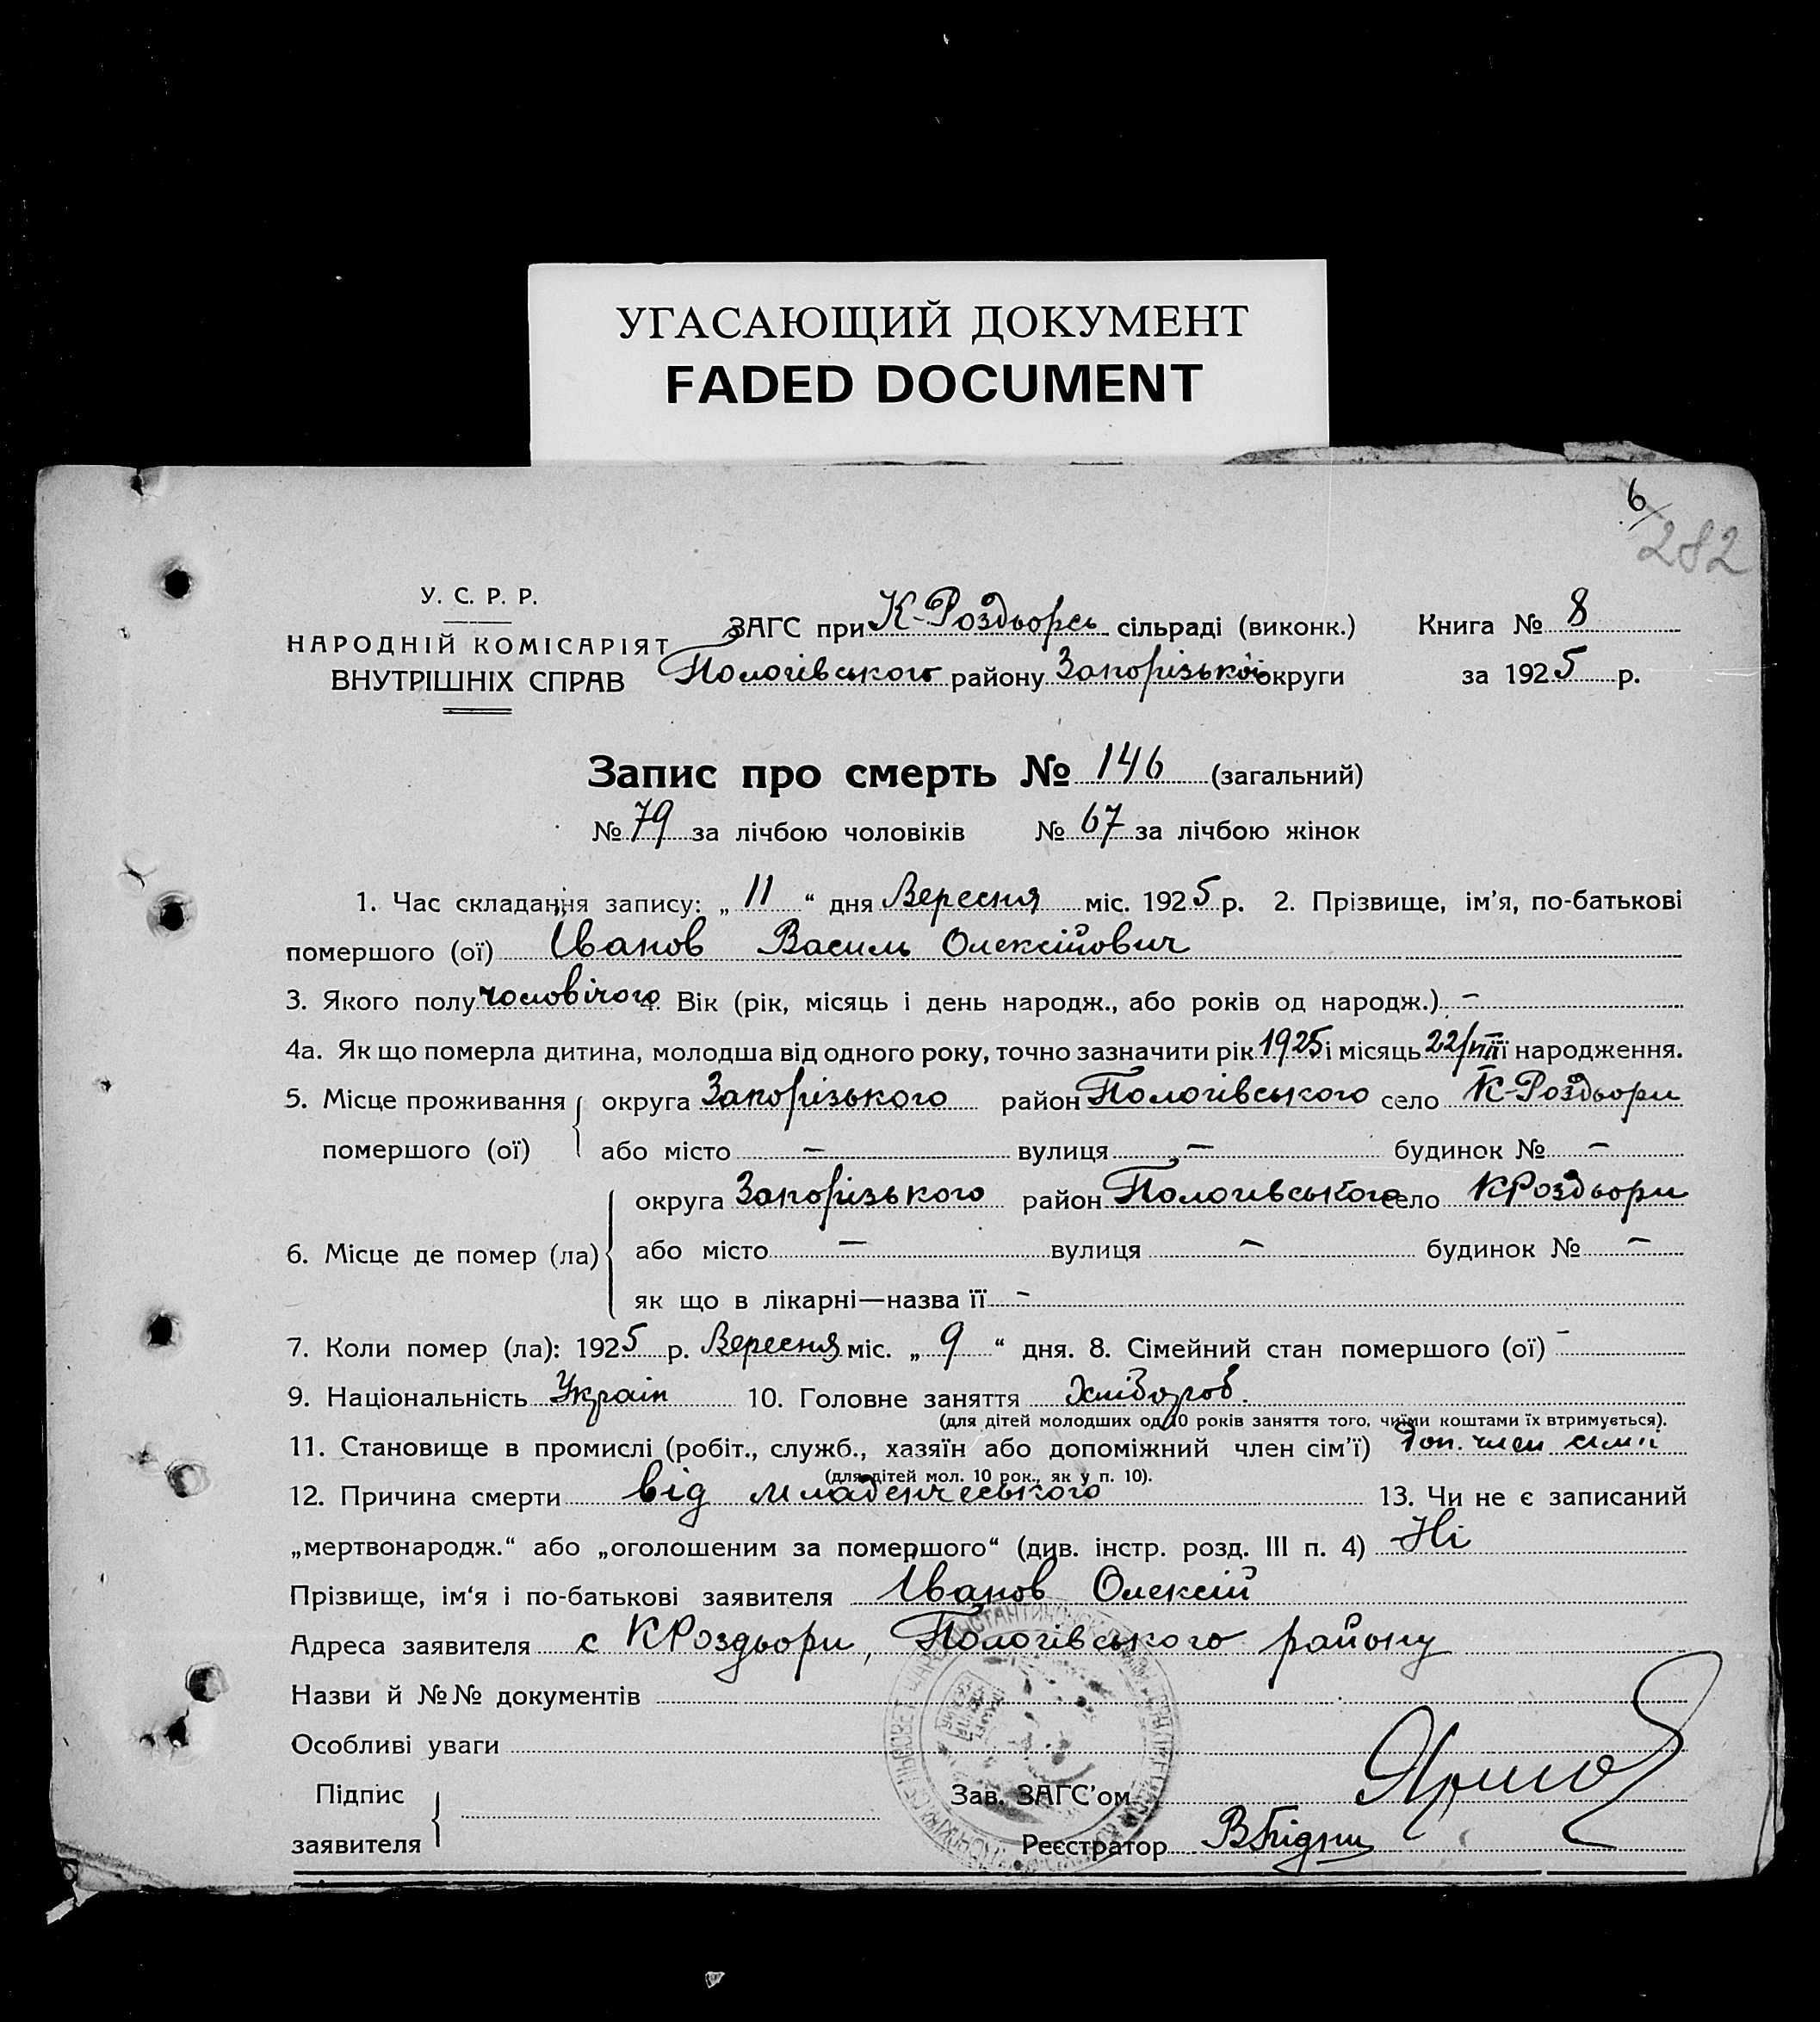 УГАСАЮЩИЙ ДОКУМЕНТ
FADED DOCUMENT
6
282
У. С. Р. Р.
НАРОДНІЙ КОМІСАРІЯТ
ВНУТРІШНІХ СПРАВ
ЗАГС при К-Роздорсь сільраді (виконк.) Книга № 8
Пологівського району Запорізької округи за 1925 р.
Запис про смерть № 146 (загальний)
№ 79 за лічбою чоловіків № 67 за лічбою жінок
1. Час складання запису: „ 11 “ дня Вересня міс. 1925 р. 2. Прізвище, ім'я, по-батькові
помершого (ої) Іванов Василь Олексійович
3. Якого полу чоловічого 4. Вік (рік, місяць і день народж., або років од народж.) –
4а. Як що померла дитина, молодша від одного року, точно зазначити рік 1925 і місяць 22/VIII її народження.
5. Місце проживання округа Запорізького район Пологівського село К-Роздьори
помершого (ої) або місто – вулиця – будинок № –
округа Запорізького район Пологівського село КРоздьори
6. Місце де помер (ла) або місто – вулиця – будинок № –
як що в лікарні—назва її –
7. Коли помер (ла): 1925 р. Вересня міс. „ 9 “ дня. 8. Сімейний стан помершого (ої) –
9. Національність Україн 10. Головне заняття Хлібороб.
(для дітей молодших од 10 років заняття того, чиїми коштами їх втримується).
11. Становище в промислі (робіт., служб., хазяїн або допоміжний член сім'ї) Доп. член сімї
(для дітей мол. 10 рок., як у п. 10).
12. Причина смерти від младенчеського 13. Чи не є записаний
„мертвонародж.“ або „оголошеним за помершого“ (див. інстр. розд. III п. 4) Ні
Прізвище, ім'я і по-батькові заявителя Іванов Олексій
Адреса заявителя с КРоздьори, Пологівського району
Назви й №№ документів
Особливі уваги
Підпис
заявителя
Зав. ЗАГС'ом
Реєстратор